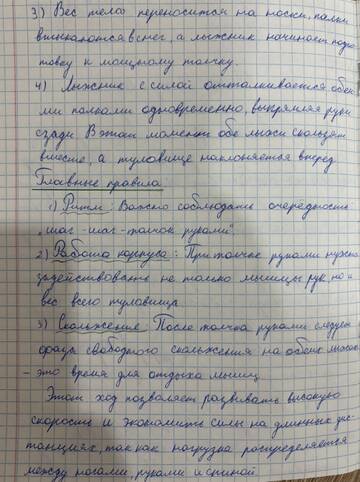 3) Вес тела переносится на носки, палки
втыкаются в снег, а лыжник начинает подго
товку к мощному толчку.
4) Лыжник с силой отталкивается обеи
ми палками одновременно, выпрямляя руки
сзади. В этот момент обе лыжи скользят
вместе, а туловище наклоняется вперед
Главные правила:
1) Ритм: Важно соблюдать очередность
"шаг-шаг-толчок руками"
2) Работа корпуса: При толчке руками нужно
задействовать не только мышцы рук но и
вес всего туловища
3) Скольжение: После толчка руками следует
фаза свободного скольжения на обеих лыжах
- это время для отдыха мышц
Этот ход позволяет развивать высокую
скорость и экономить силы на длинных дис
танциях, так как нагрузка распределяется
между ногами, руками и спиной